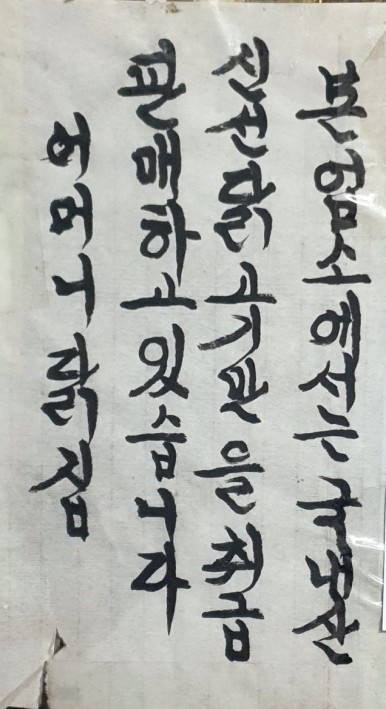 본업소에서는 국내산
신선닭고기만을 취급
판매하고 있습니다
어머니닭집